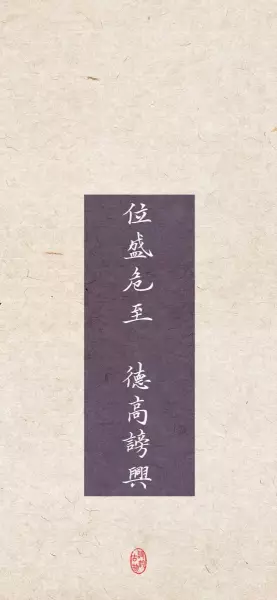 位盛危至　德高謗興